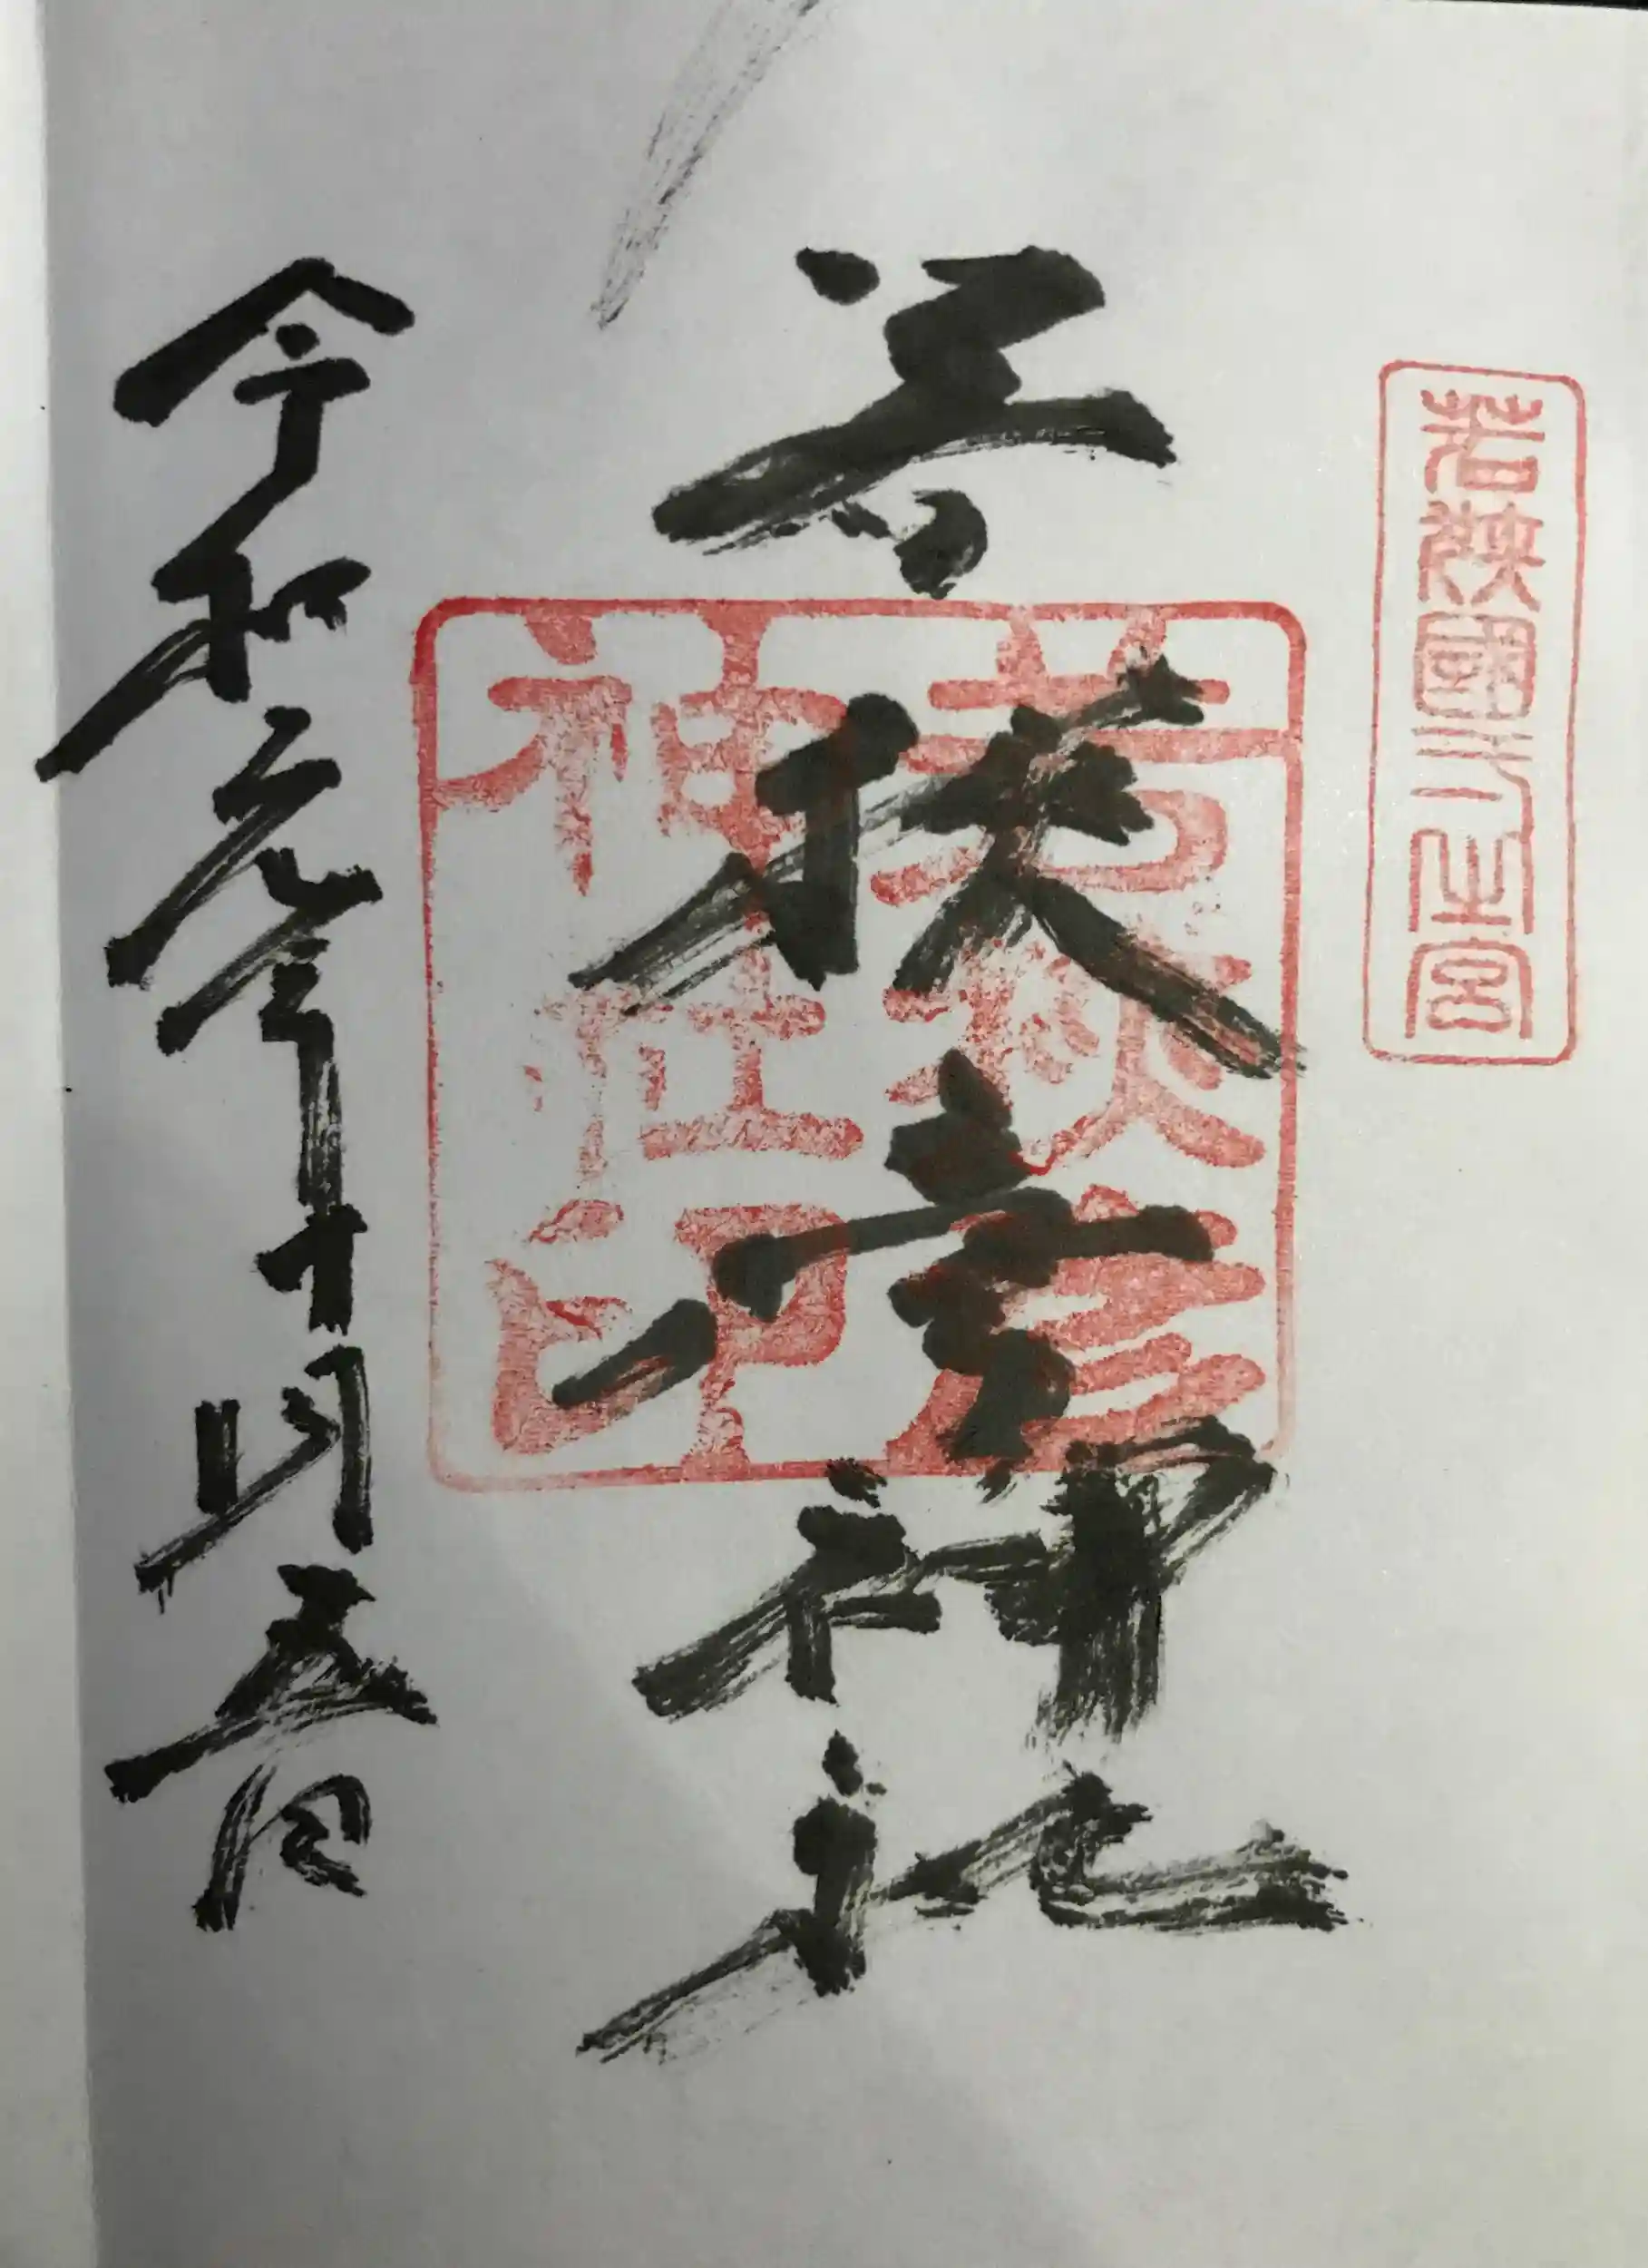 若狭國一之宮
若狭彦神社
若狭彦
神社印
令和元年十月五日